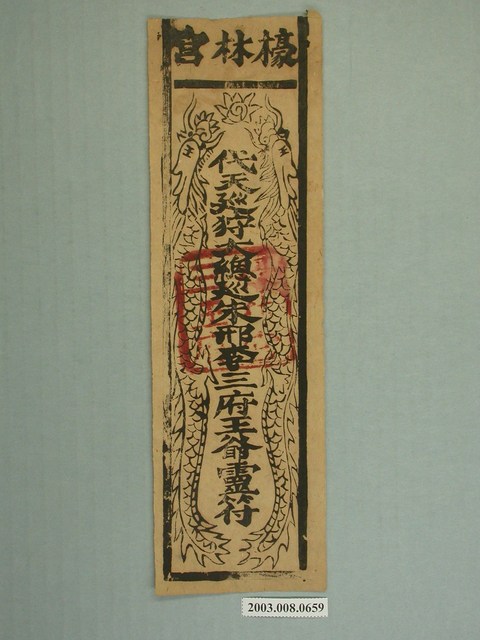 檺林宮
代天巡狩大總巡朱邢李三府王爺靈符
2003.008.0659